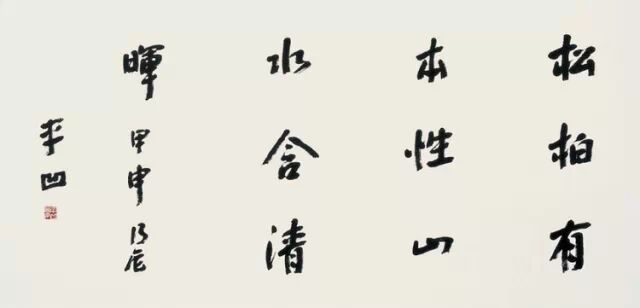 松柏有
本性山
水含清
暉甲申
平凹